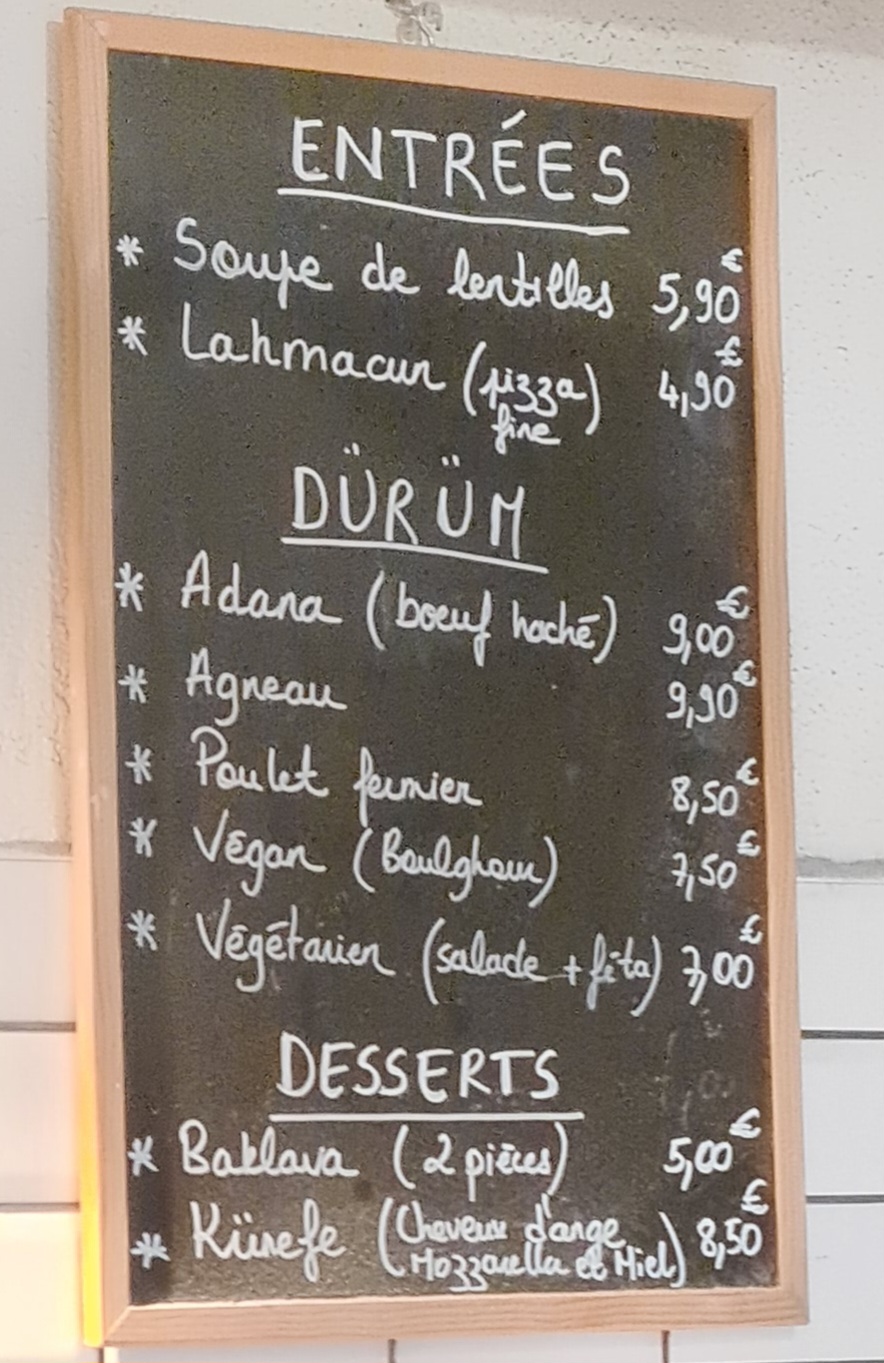 ENTRÉES
* Soupe de lentilles 5,90€
* Lahmacun (pizza fine) 4,90€
DÜRÜM
* Adana (boeuf haché) 9,00€
* Agneau 9,90€
* Poulet fermier 8,50€
* Végan (Boulghour) 7,50€
* Végétarien (salade + féta) 7,00€
DESSERTS
* Baklava (2 pièces) 5,00€
* Künefe (Cheveux d'ange Mozzarella et Miel) 8,50€